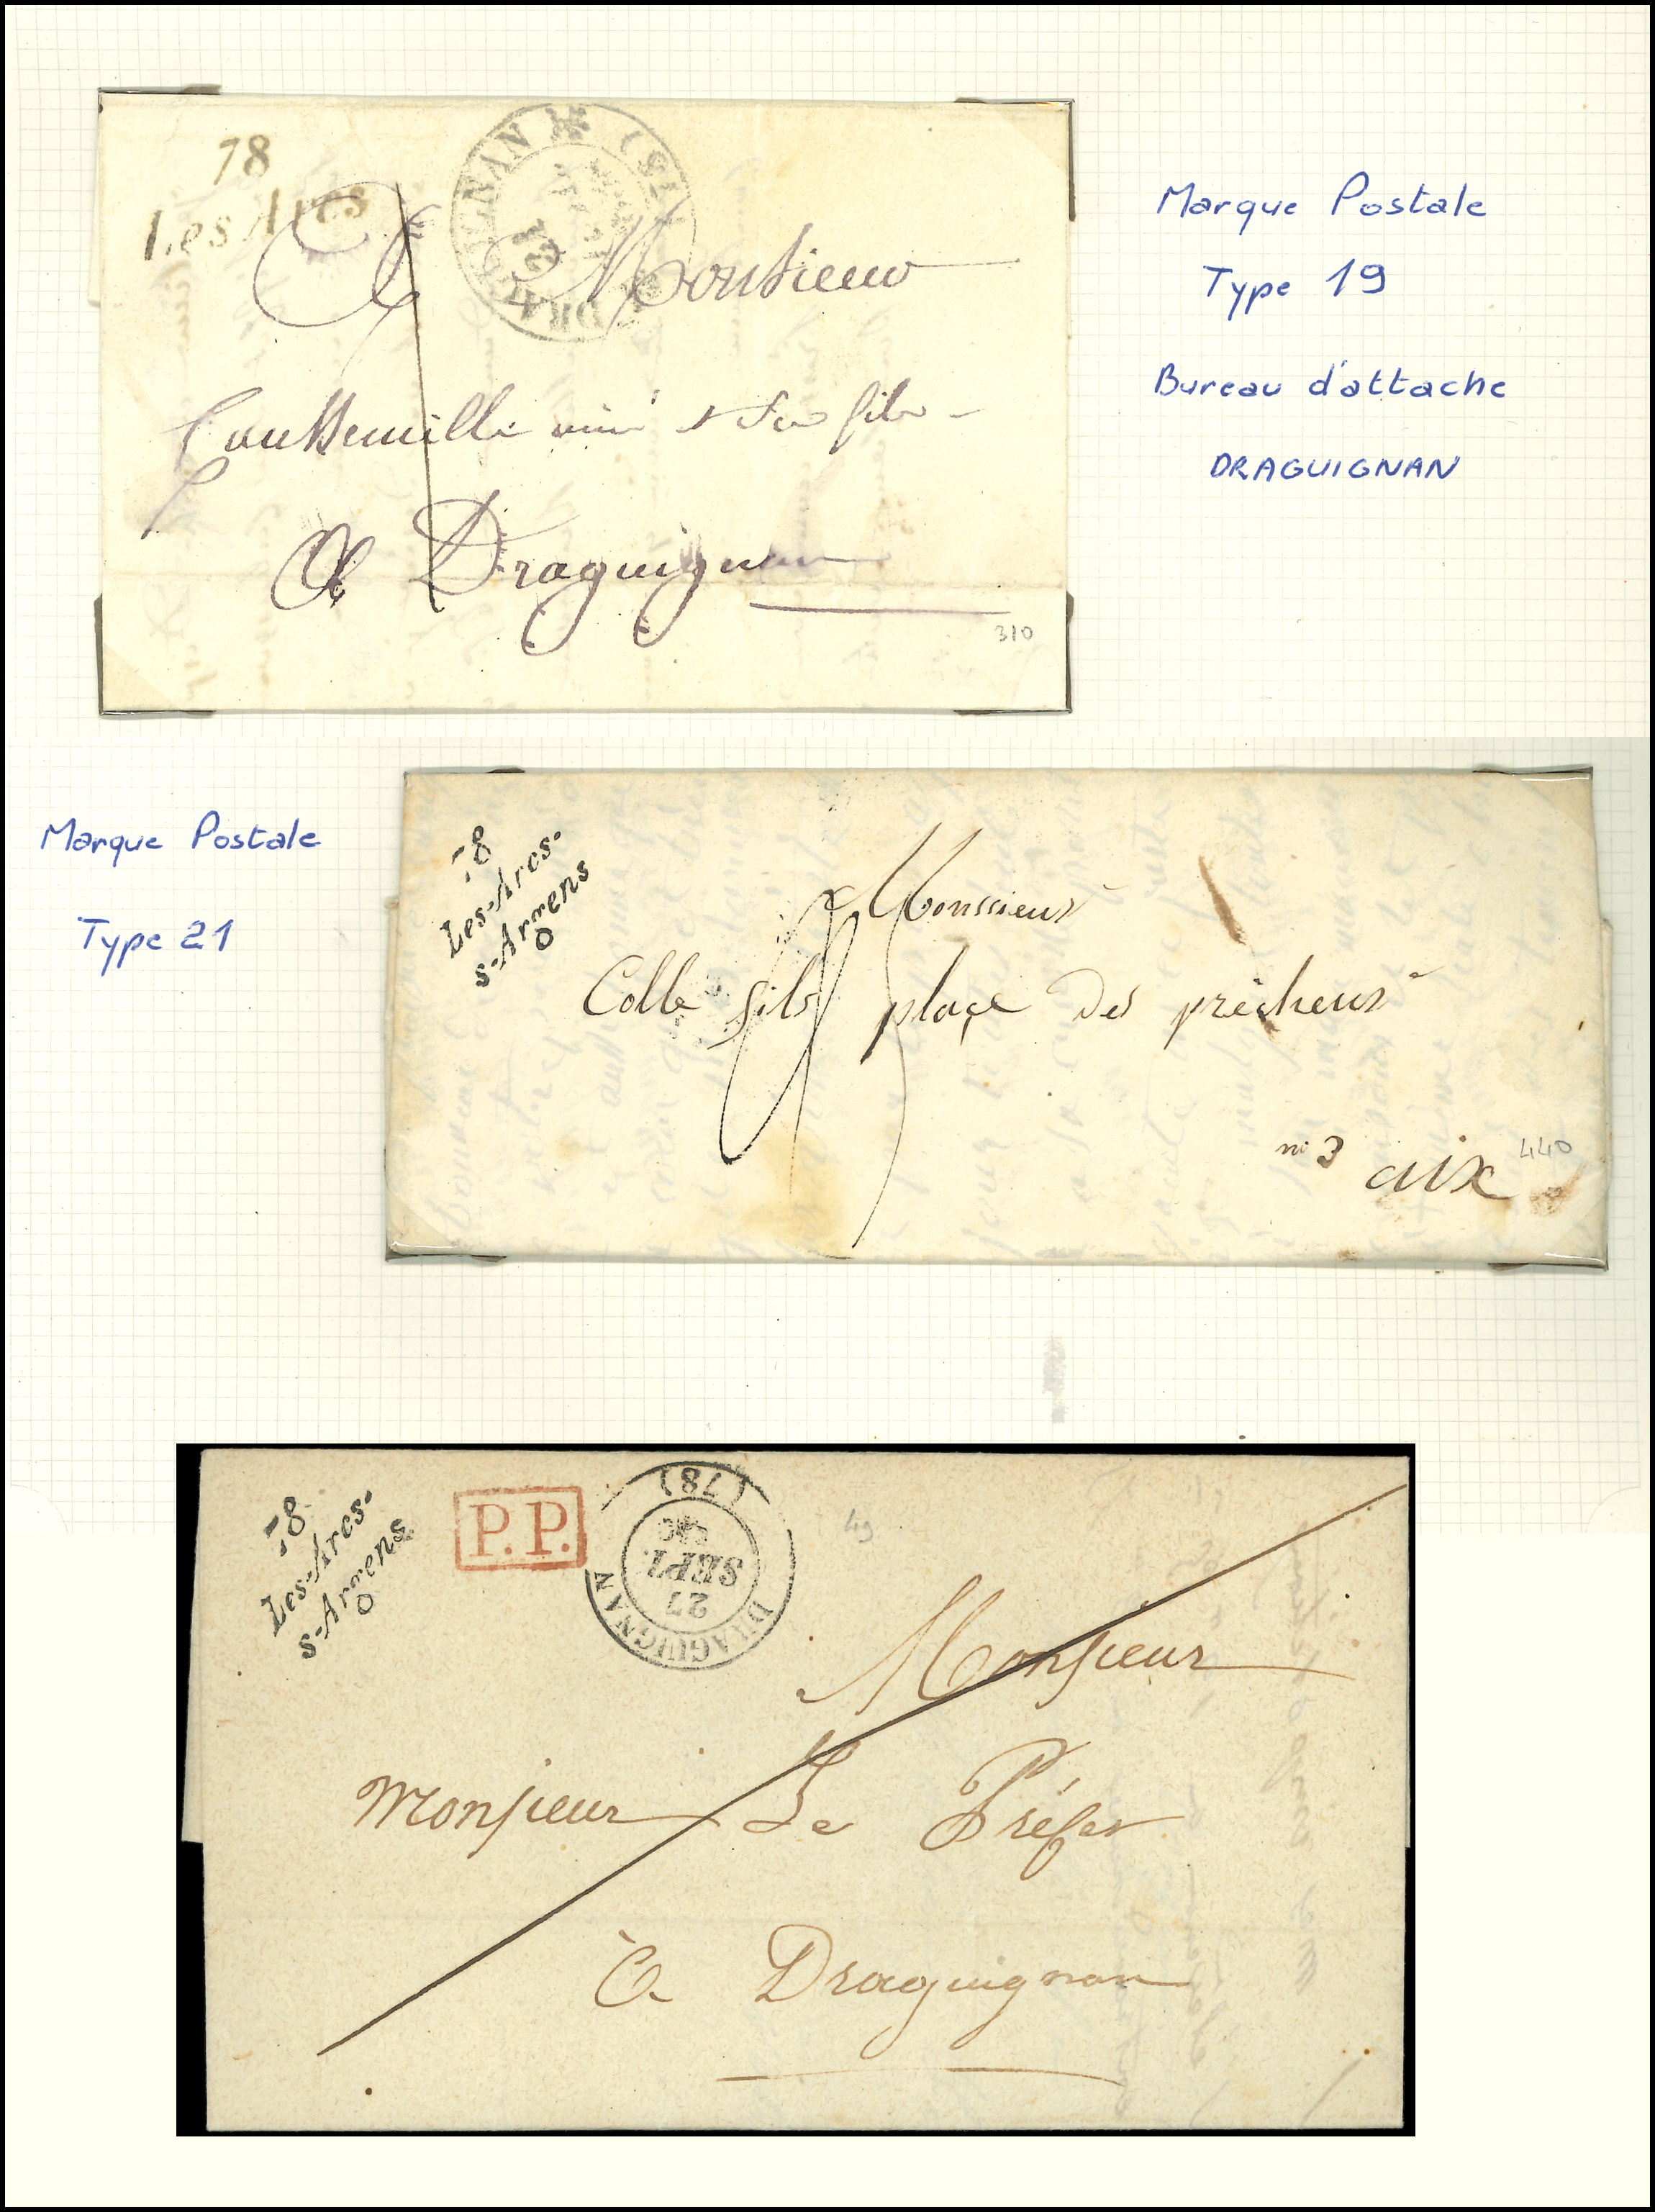 78
Les Arcs
DRAGUIGNAN
Monsieur
fils
A Draguignan
310
Marque Postale
Type 19
Bureau d'attache
DRAGUIGNAN
Marque Postale
Type 21
78
Les-Arcs-
s-Argens
Monssieur
Colle fils place des prêcheurs
n° 3 aix
440
78
Les-Arcs-
s-Argens
P.P.
(78)
27
SEPT.
DRAGUIGNAN
49
Monsieur
Monsieur Le Préfet
à Draguignan